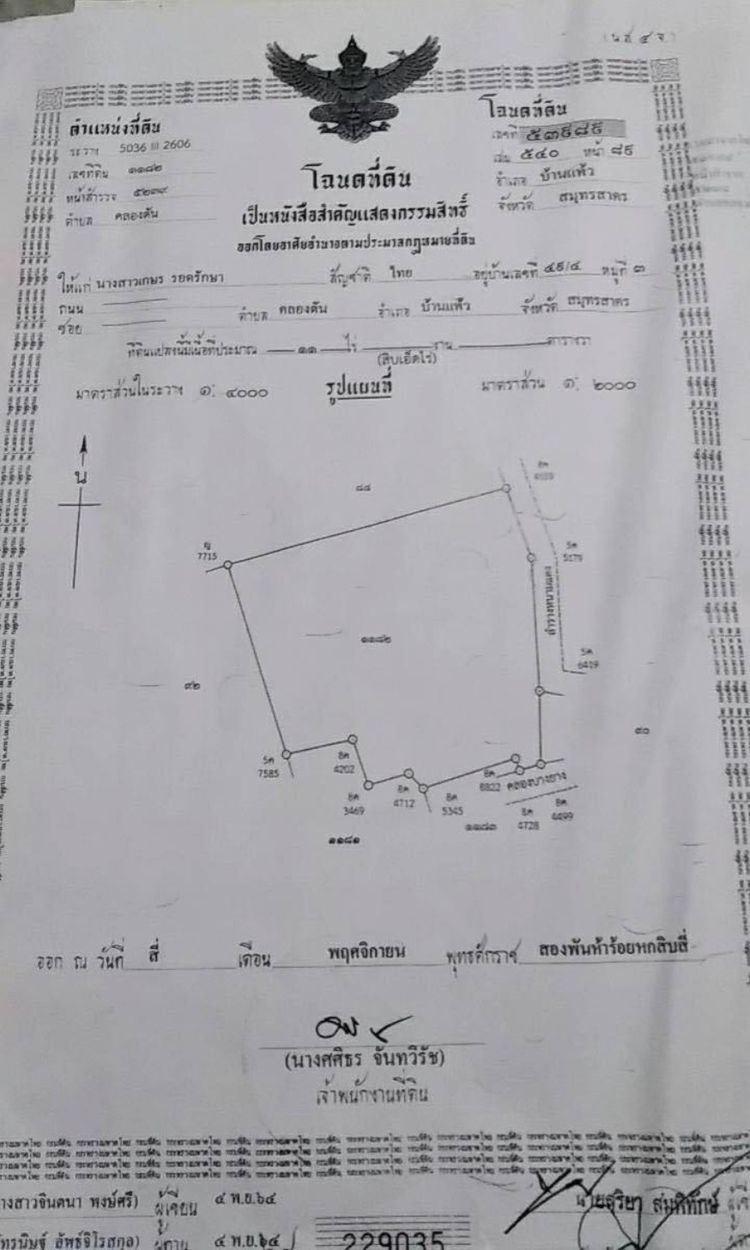 (น.ส. ๔ จ.)
ตำแหน่งที่ดิน
ระวาง 5036 III 2606
เลขที่ดิน ๑๑๘๒
หน้าสำรวจ ๕๒๓๙
ตำบล คลองตัน
โฉนดที่ดิน
เลขที่
เล่ม ๕๔๐ หน้า ๘๕
อำเภอ บ้านแพ้ว
จังหวัด สมุทรสาคร
โฉนดที่ดิน
เป็นหนังสือสำคัญแสดงกรรมสิทธิ์
ออกโดยอาศัยอำนาจตามประมวลกฎหมายที่ดิน
ให้แก่ นางสาวเกษร รอดรักษา สัญชาติ ไทย อยู่บ้านเลขที่ ๔๕/๔ หมู่ที่ ๓
ถนน
ซอย ตำบล คลองตัน อำเภอ บ้านแพ้ว จังหวัด สมุทรสาคร
ที่ดินแปลงนี้มีเนื้อที่ประมาณ ๑๑ ไร่ งาน ตารางวา
(สิบเอ็ดไร่)
มาตราส่วนในระวาง ๑: ๔๐๐๐ รูปแผนที่ มาตราส่วน ๑: ๒๐๐๐
น
๘๘
8ค
ญ
7715
5ค
5179
ลำรางหนามแดง
๑๑๘๒
5ค
6419
๙๒
๙๐
5ค
7585
8ค
4202
8ค
3469
8ค
4712
8ค
5345
8ค
8822
คลองบางยาง
8ค
4728
8ค
4499
๑๑๘๓
๑๑๘๑
ออก ณ วันที่ สี่ เดือน พฤศจิกายน พุทธศักราช สองพันห้าร้อยหกสิบสี่
(นางศศิธร จันทวิรัช)
เจ้าพนักงานที่ดิน
างสาวจินตนา พงษ์ศรี) ผู้เขียน ๔ พ.ย.๖๔
นายสุริยา สมพิทักษ์
ผู้ทาน ๔ พ.ย.๖๔
229035